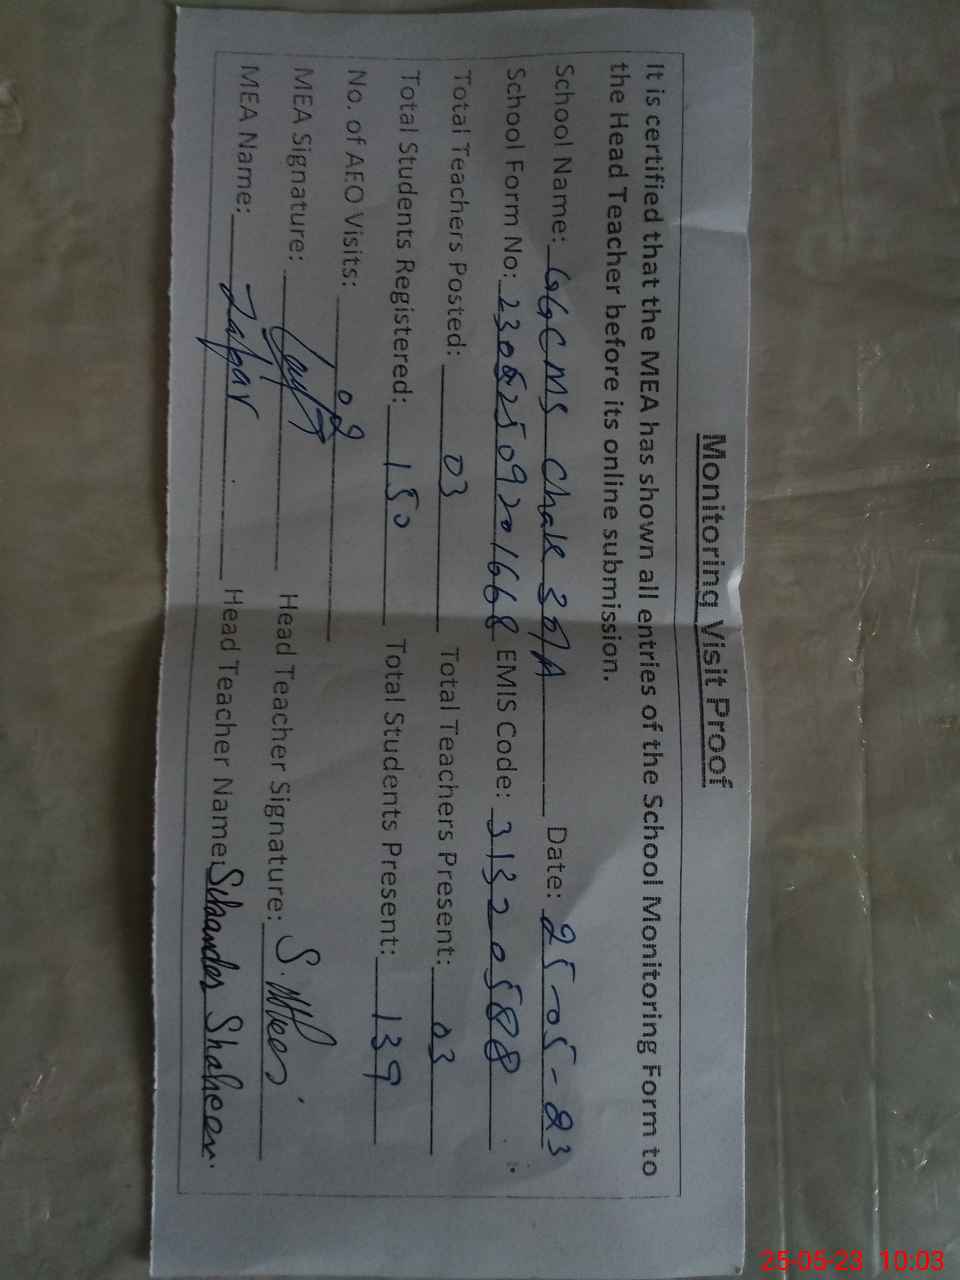 Monitoring Visit Proof
It is certified that the MEA has shown all entries of the School Monitoring Form to
the Head Teacher before its online submission.
School Name: GGCMS Chak 30/A Date: 25-05-23
School Form No: 23052509201668 EMIS Code: 31320588
Total Teachers Posted: 03 Total Teachers Present: 03
Total Students Registered: 150 Total Students Present: 139
No. of AEO Visits: 02
MEA Signature: Head Teacher Signature:
MEA Name: Zafar Head Teacher Name: Shaheen
25-05-23 10:03